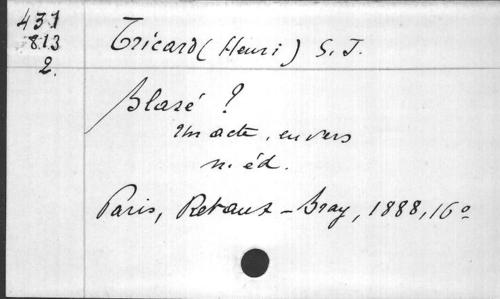 431
813
2.
Tricard (Henri) S. J.
Blasé ?
un acte, en vers
n. éd.
Paris, Retaux-Bray, 1888, 16°